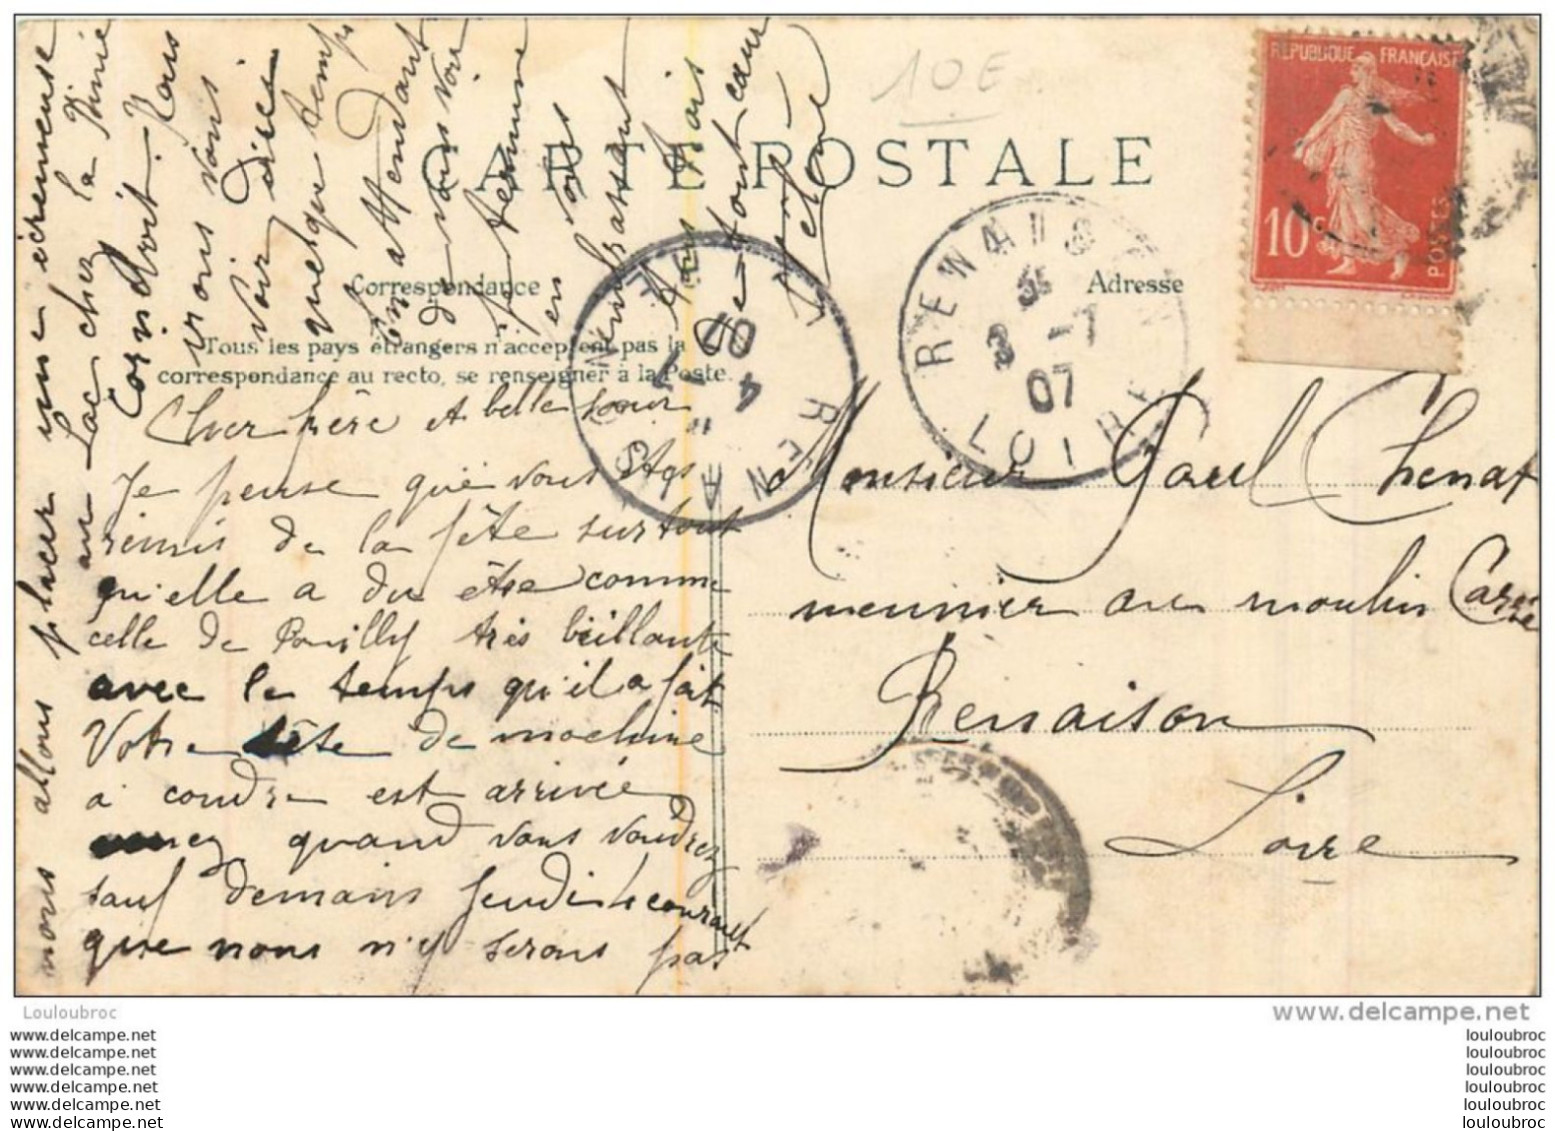 10 E
RÉPUBLIQUE FRANÇAISE
10c
POSTES
CARTE POSTALE
Correspondance
Adresse
Tous les pays étrangers n'acceptent pas la
correspondance au recto, se renseigner à la Poste.
RENAISON
3 -7
07
LOIRE
4 -7
07
Cher frère et belle soeur
Je pense que vous êtes
remis de la fête surtout
qu'elle a du être comme
celle de Pouilly très brillante
avec le temps qu'il a fait
Votre tête de machine
à coudre est arrivée
venez quand vous voudrez
sauf demain jeudi le courant
que nous n'y serons pas
nous allons placer une écremeuse
au Lac chez la Mimie
Cornidroit. Nous
irons vous
voir d'ici
quelque temps
En attendant
de vous voir
je termine
en vous
embrassant
tous
de tout cœur
Monsieur Paul Chenat
meunier au moulin Carré
Renaison
Loire
Louloubroc
www.delcampe.net
www.delcampe.net
www.delcampe.net
www.delcampe.net
www.delcampe.net
www.delcampe.net
www.delcampe.net
louloubroc
louloubroc
louloubroc
louloubroc
louloubroc
louloubroc